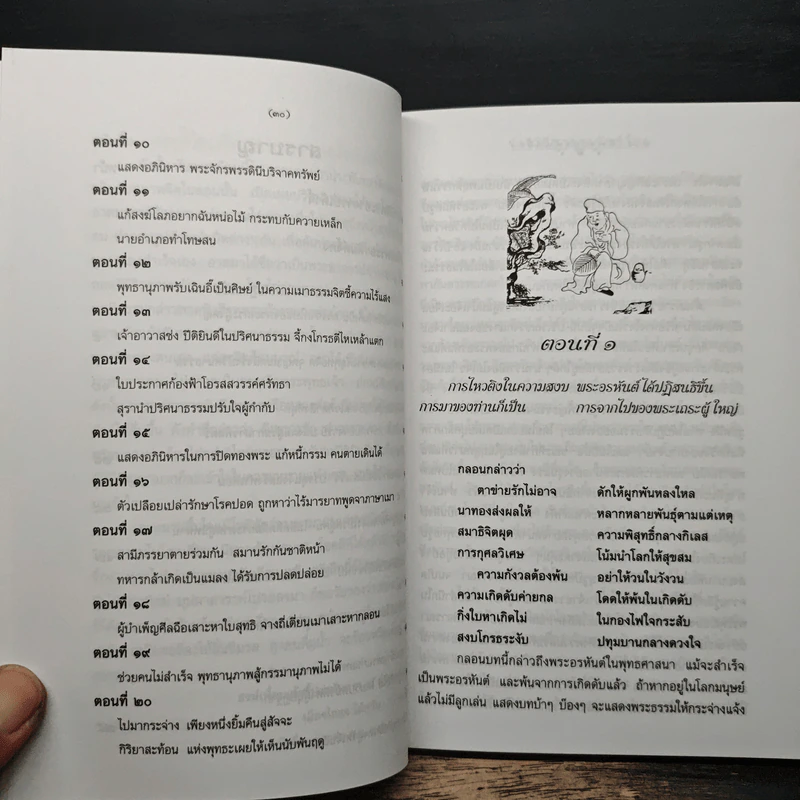 (๓๐)
ตอนที่ ๑๐
แสดงอภินิหาร พระจักรพรรดินีบริจาคทรัพย์
ตอนที่ ๑๑
แก้สงฆ์โลภอยากฉันหน่อไม้ กระทบกับควายเหล็ก
นายอำเภอทำโทษสน
ตอนที่ ๑๒
พุทธานุภาพรับเฉินอี้เป็นศิษย์ ในความเมาธรรมจิตชี้ความไร้แสง
ตอนที่ ๑๓
เจ้าอาวาสซ่ง ปีติยินดีในปริศนาธรรม จี้กงโกรธตีไหเหล้าแตก
ตอนที่ ๑๔
ใบประกาศก้องฟ้าโอรสสวรรค์ศรัทธา
สุรานำปริศนาธรรมปรับใจผู้กำกับ
ตอนที่ ๑๕
แสดงอภินิหารในการปิดทองพระ แก้หนี้กรรม คนตายเดินได้
ตอนที่ ๑๖
ตัวเปลือยเปล่ารักษาโรคปอด ถูกหาว่าไร้มารยาทพูดจาภาษาเมา
ตอนที่ ๑๗
สามีภรรยาตายร่วมกัน สมานรักกันชาติหน้า
ทหารกล้าเกิดเป็นแมลง ได้รับการปลดปล่อย
ตอนที่ ๑๘
ผู้บำเพ็ญศีลฉือเสาะหาใบสุทธิ จางถี่เตี่ยนเมาเสาะหากลอน
ตอนที่ ๑๙
ช่วยคนไม่สำเร็จ พุทธานุภาพสู้กรรมานุภาพไม่ได้
ตอนที่ ๒๐
ไปมากระจ่าง เพียงหนึ่งยิ้มคืนสู่สัจจะ
กิริยาสะท้อน แห่งพุทธะเผยให้เห็นนับพันฤดู
ตอนที่ ๑
การไหวติงในความสงบ พระอรหันต์ได้ปฏิสนธิขึ้น
การมาของท่านก็เป็น การจากไปของพระเถระผู้ใหญ่
กลอนกล่าวว่า
ตาข่ายรักไม่อาจ ดักให้ผูกพันหลงใหล
นาทองส่งผลให้ หลากหลายพันธุ์ตามแต่เหตุ
สมาธิจิตผุด ความพิสุทธิ์กลางกิเลส
การกุศลวิเศษ โน้มนำโลกให้สุขสม
ความกังวลต้องพ้น อย่าให้วนในวังวน
ความเกิดดับค่ายกล โดดให้พ้นในเกิดดับ
กิ่งใบหาเกิดไม่ ในกองไฟใจกระสับ
สงบโกรธระงับ ปทุมบานกลางดวงใจ
กลอนบทนี้กล่าวถึงพระอรหันต์ในพุทธศาสนา แม้จะสำเร็จ
เป็นพระอรหันต์ และพ้นจากการเกิดดับแล้ว ถ้าหากอยู่ในโลกมนุษย์
แล้วไม่มีลูกเล่น แสดงบทบ้าๆ บ๊องๆ จะแสดงพระธรรมให้กระจ่างแจ้ง